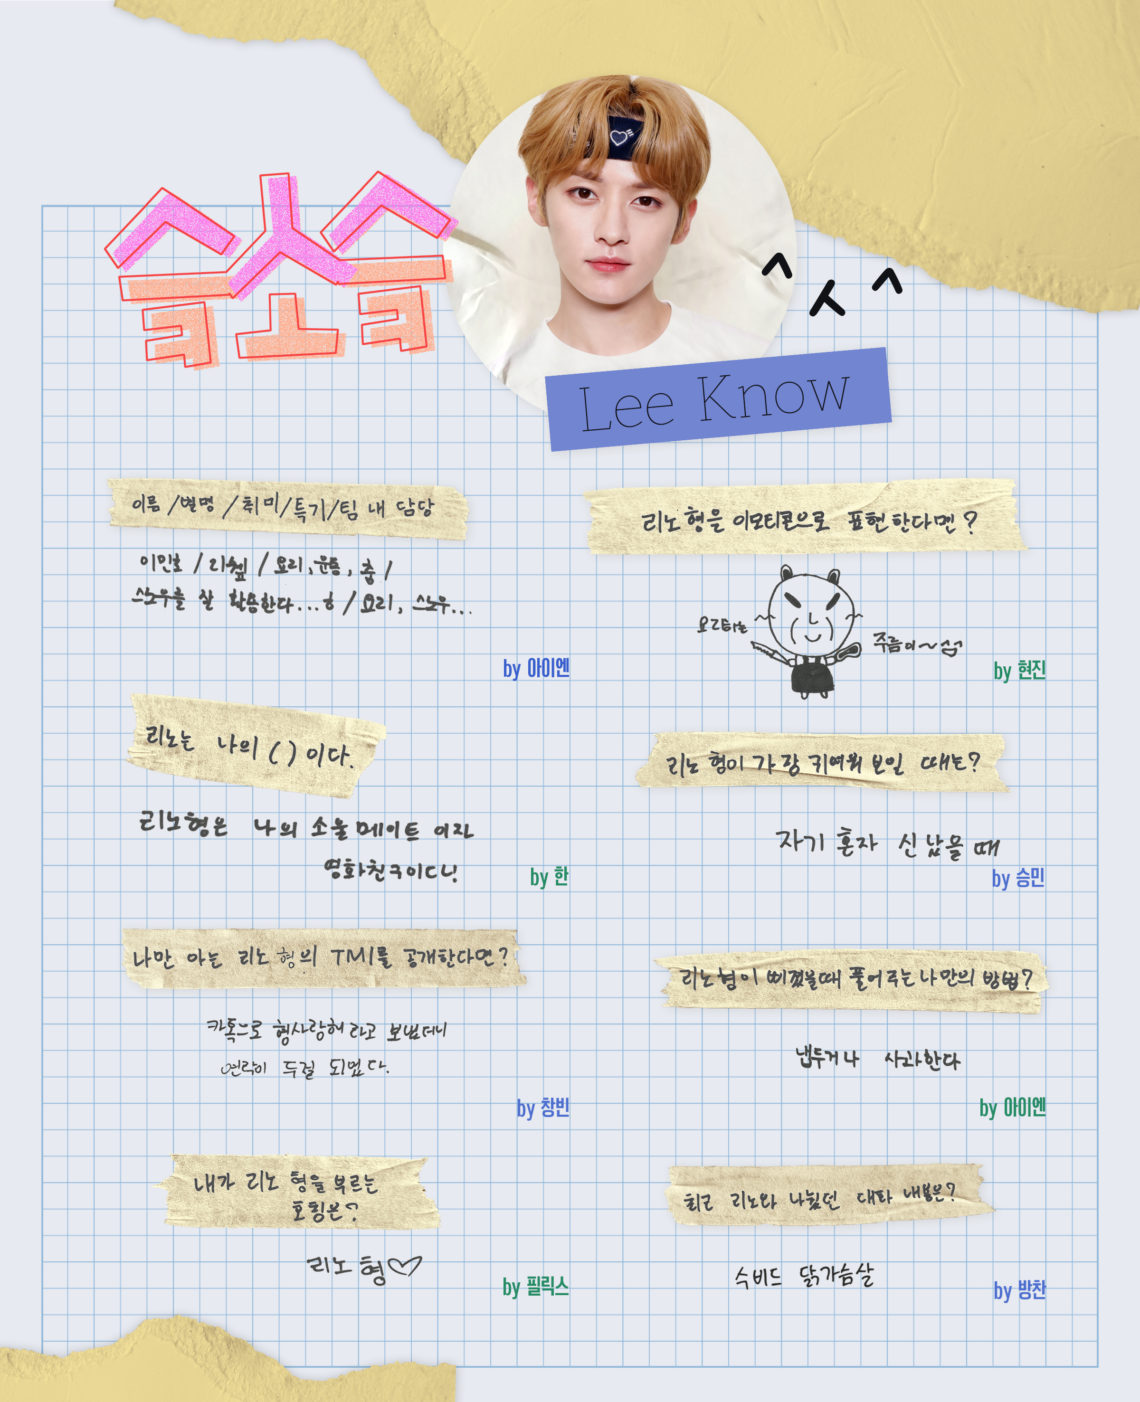 슬소슬
^ㅅ^
Lee Know
이름 /별명 /취미/특기/팀 내 담당
이민호 / 리쉪 / 요리,운동, 춤 /
스노우를 잘 활용한다...ㅎ / 요리, 스노우...
by 아이엔
리노 형을 이모티콘으로 표현한다면?
요리하는
주름이~
by 현진
리노는 나의 ( ) 이다.
리노형은 나의 소울메이트 이자
영화친구이다!
by 한
리노 형이 가장 귀여워 보일 때는?
자기 혼자 신났을 때
by 승민
나만 아는 리노 형의 TMI를 공개한다면?
카톡으로 형사랑해 라고 보냈더니
연락이 두절 되었다.
by 창빈
리노형이 삐졌을때 풀어주는 나만의 방법?
냅두거나 사과한다
by 아이엔
내가 리노 형을 부르는
호칭은?
리노 형♡
by 필릭스
최근 리노와 나눴던 대화 내용은?
수비드 닭가슴살
by 방찬